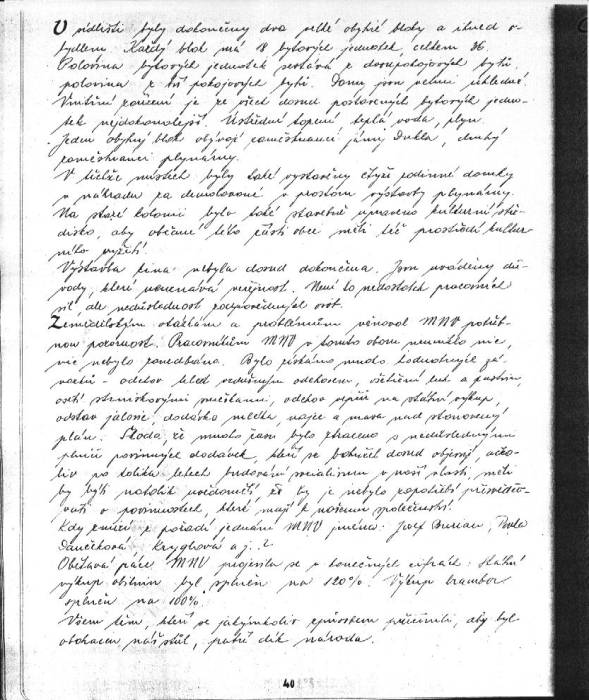 V sídlišti byly dokončeny dva velké obytné bloky a ihned o-
bydleny. Každý blok má 18 bytových jednotek, celkem 36.
Polovina bytových jednotek sestává z dvoupokojových bytů
polovina z tří pokojových bytů. Domy jsou velmi úhledné.
Vnitřní zařízení je ze všech dosud postavených bytových jedno-
tek nejdokonalejší. Ústřední topení teplá voda, plyn.
Jeden obytný blok obývají zaměstnanci jámy Dukla, druhý
zaměstnanci plynárny.
V těchže místech byly také vystavěny čtyři rodinné domky
v náhradu za demolované v prostoru výstavby plynárny.
Na staré kolonii bylo také stavebně upraveno kulturní stře-
disko, aby občané této části obce měli též prostředí kultur-
ního vyžití.
Výstavba kina nebyla dosud dokončena. Jsou uváděny dů-
vody, které neuznává veřejnost. Není to nedostatek pracovních
sil, ale nedůslednost zodpovědných osob.
Zemědělským otázkám a problémům věnoval MNV potřeb-
nou pozornost. Pracovníkům MNV v tomto oboru neuniklo nic,
nic nebylo zanedbáno. Bylo získáno mnoho hodnotných zá-
vazků - odchov telat vzdušným odchovem, ošetření luk a pastvin,
osetí strniskovými směskami, odchov vepřů na státní výkup,
odstav jalovic, dodávka mléka, vajec a masa nad stanovený
plán. Škoda, že mnoho času bylo ztraceno s nedůslednými
plniči povinných dodávek, kteří se bohužel dosud objevují, ačko-
liv po tolika letech budování socialismu v naší vlasti, měli
by býti natolik uvědomělí, že by je nebylo zapotřebí přesvědčo-
vati o povinnostech, které mají k našemu společenství.
Kdy zmizí z pořadí jednání MNV jména: Josef Burian, Pavla
Daníčková Kryglová a j..?
Obětavá práce MNV projevila se v konečných cifrách: státní
výkup obilnin byl splněn na 120%. Výkup brambor
splněn na 100%.
Všem těm, kteří se jakýmkoliv způsobem přičinili, aby byl
obohacen náš stůl, patří dík národa.
40